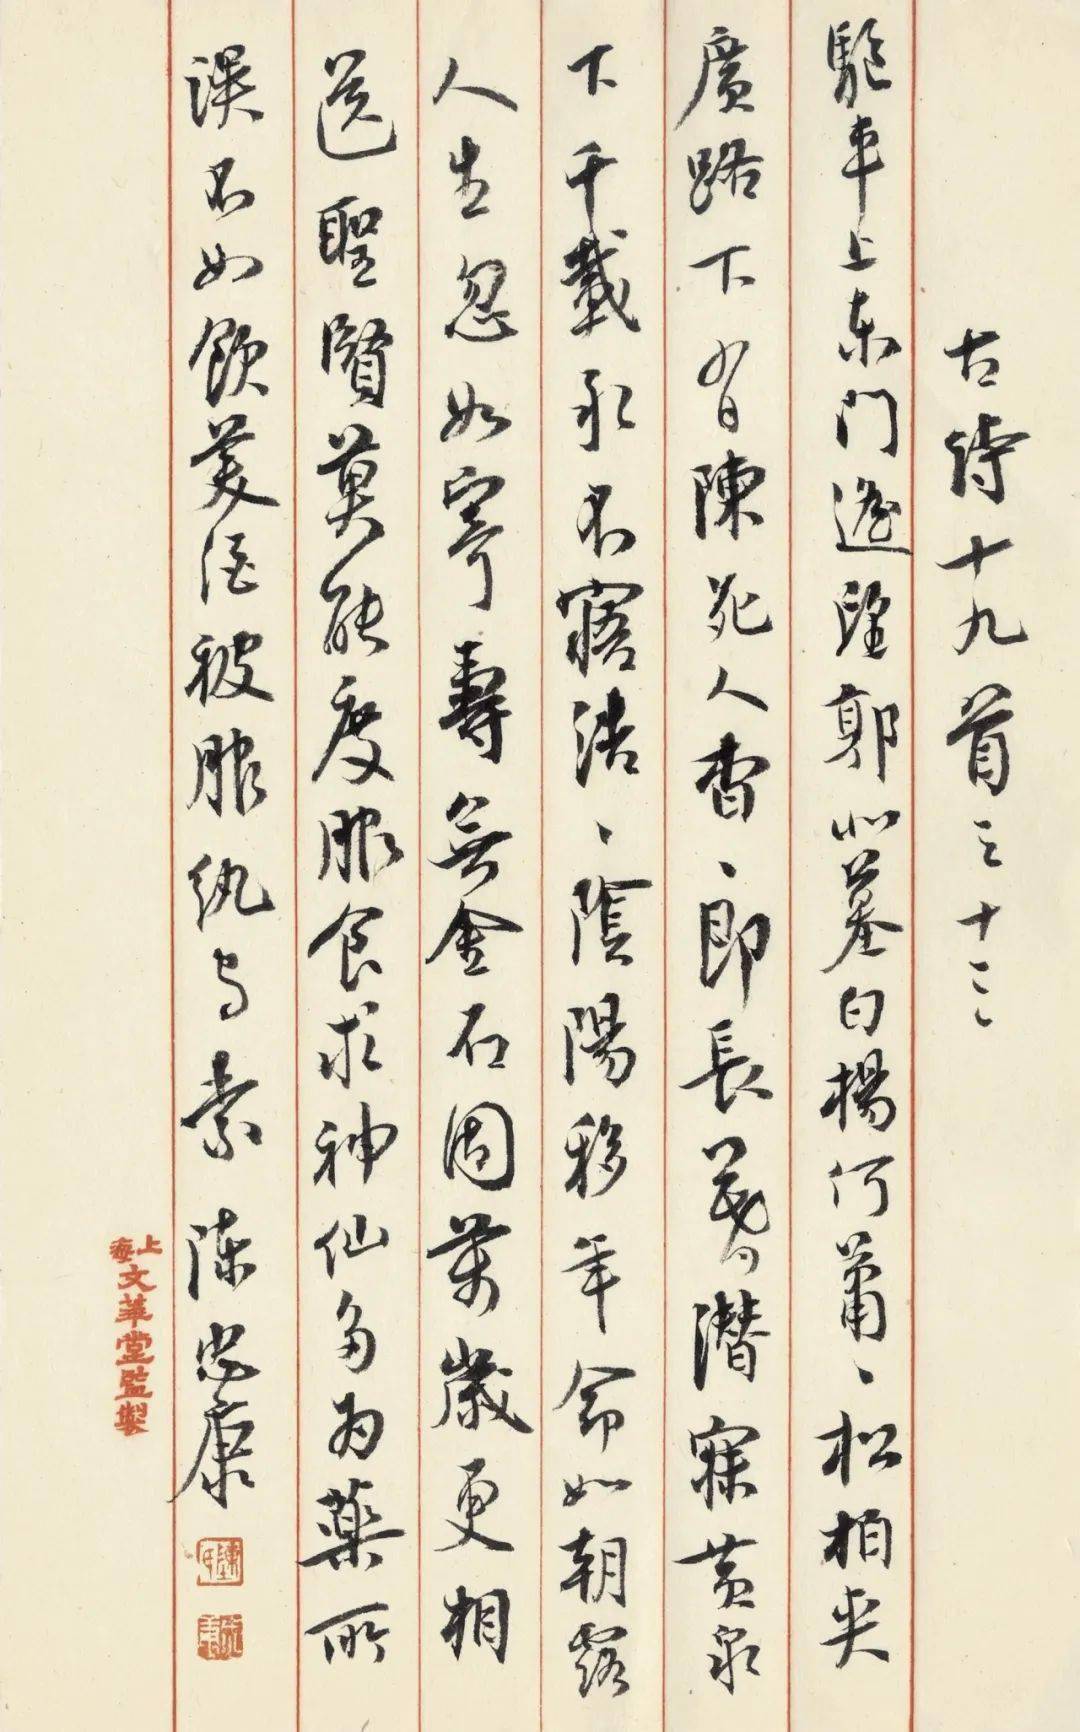 古詩十九首之十三
驅車上东门遥望郭北墓白楊何蕭、松柏夾
廣路下有陳死人杳、即長暮潛寐黄泉
下千載永不寤浩、陰陽移年命如朝露
人生忽如寄壽無金石固萬歲更相
送聖賢莫能度服食求神仙多为藥所
误不如飲美酒被服纨与素 陈忠康
上海文華堂監製